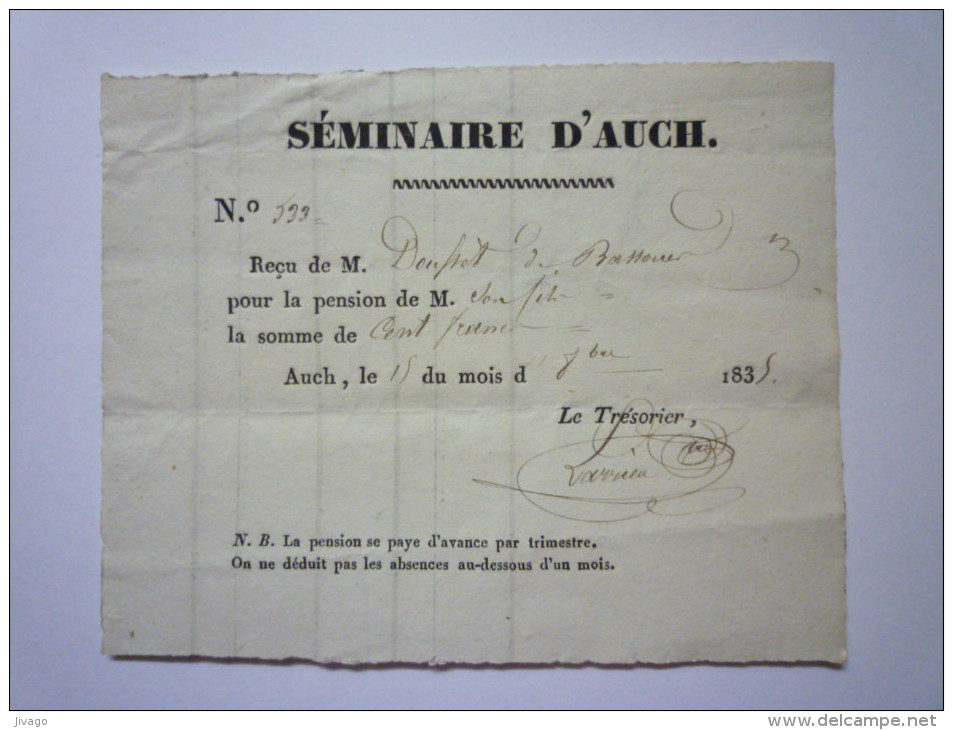 SÉMINAIRE D'AUCH.
N.º 533 =
Reçu de M. Dousset de Bassoues
pour la pension de M. son fils =
la somme de Cent francs =
Auch, le 15 du mois d' 8bre 1835.
Le Trésorier,
Larrieu
N. B. La pension se paye d'avance par trimestre.
On ne déduit pas les absences au-dessous d'un mois.
Jivago
www.delcampe.net